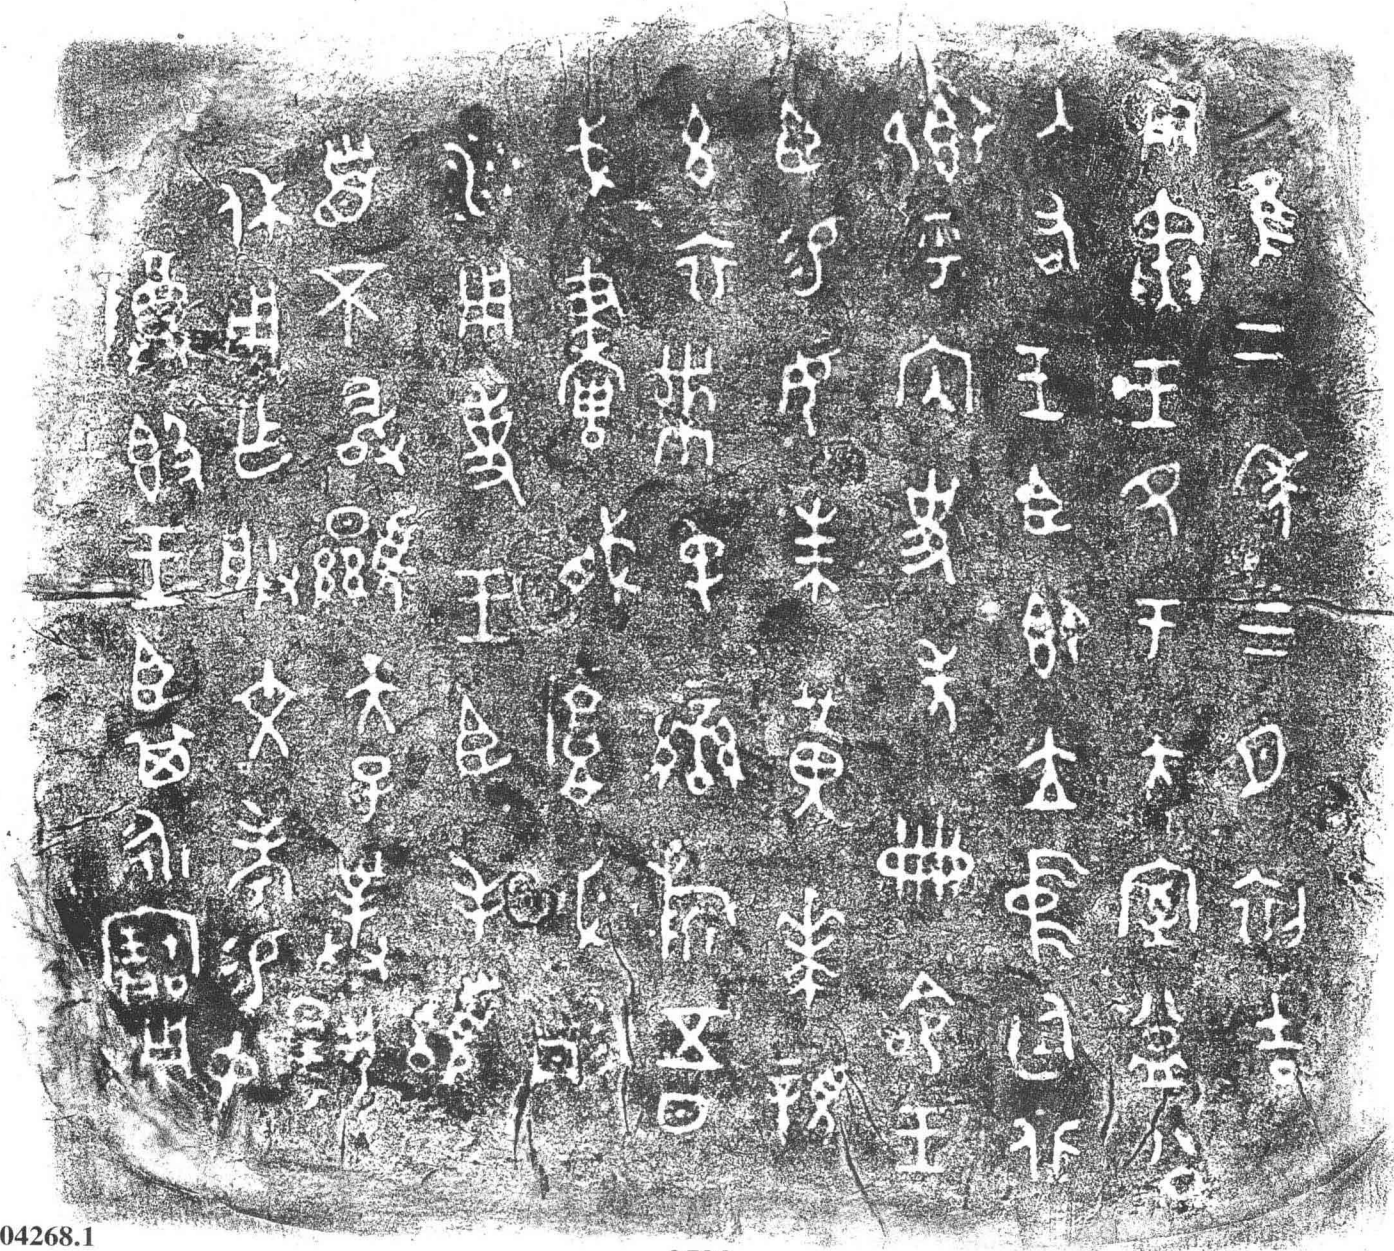 隹二年三月初吉
庚寅王各于大室益公
入右王臣即立中廷北
鄉乎內史年冊命王
臣易女朱黃𠦪親
玄衣黹屯䜌旂五日
戈畫胾厚必彤
沙用事王臣手䭫
首不敢顯天子對揚
休用乍朕文考易中
尊簋王臣其永寶用
04268.1